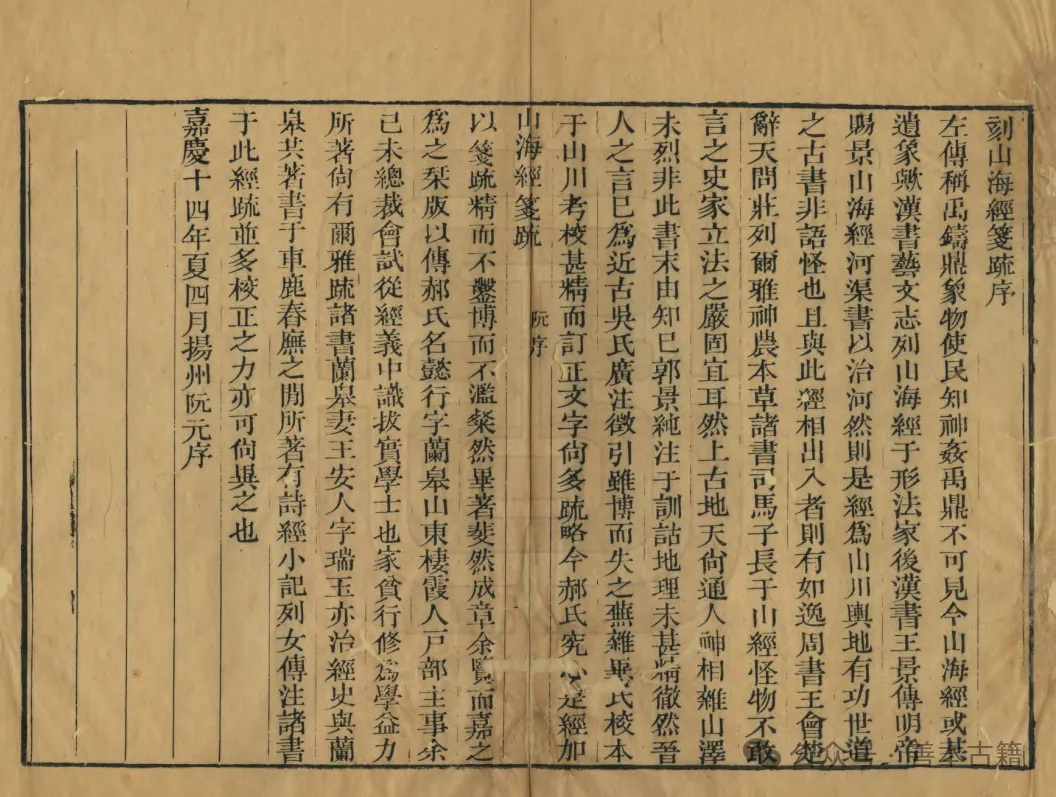 刻山海經箋疏序
左傳稱禹鑄鼎象物使民知神姦禹鼎不可見今山海經或其
遺象歟漢書藝文志列山海經于形法家後漢書王景傳明帝
賜景山海經河渠書以治河然則是經爲山川輿地有功世道
之古書非語怪也且與此經相出入者則有如逸周書王會楚
辭天問莊列爾雅神農本草諸書司馬子長于山經怪物不敢
言之史家立法之嚴固宜耳然上古地天尙通人神相雜山澤
未烈非此書末由知已郭景純注于訓詁地理未甚精徹然晉
人之言已爲近古吳氏廣注徵引雖博而失之蕪雜畢氏校本
于山川考校甚精而訂正文字尙多疏略今郝氏究心是經加
山海經箋疏
阮序
以箋疏精而不鑿博而不濫粲然畢著斐然成章余覽而嘉之
爲之栞版以傳郝氏名懿行字蘭皋山東棲霞人戸部主事余
己未總裁會試從經義中識拔實學士也家貧行修爲學益力
所著尙有爾雅疏諸書蘭皋妻王安人字瑞玉亦治經史與蘭
皋共著書于車鹿春廡之閒所著有詩經小記列女傳注諸書
于此經疏並多校正之力亦可尙異之也
嘉慶十四年夏四月揚州阮元序
公众号·善本古籍